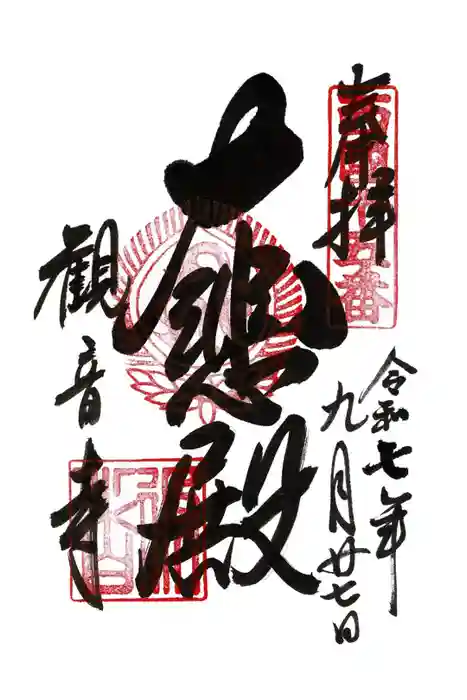 奉拝
令和七年
九月廿七日
大悲殿
観音寺